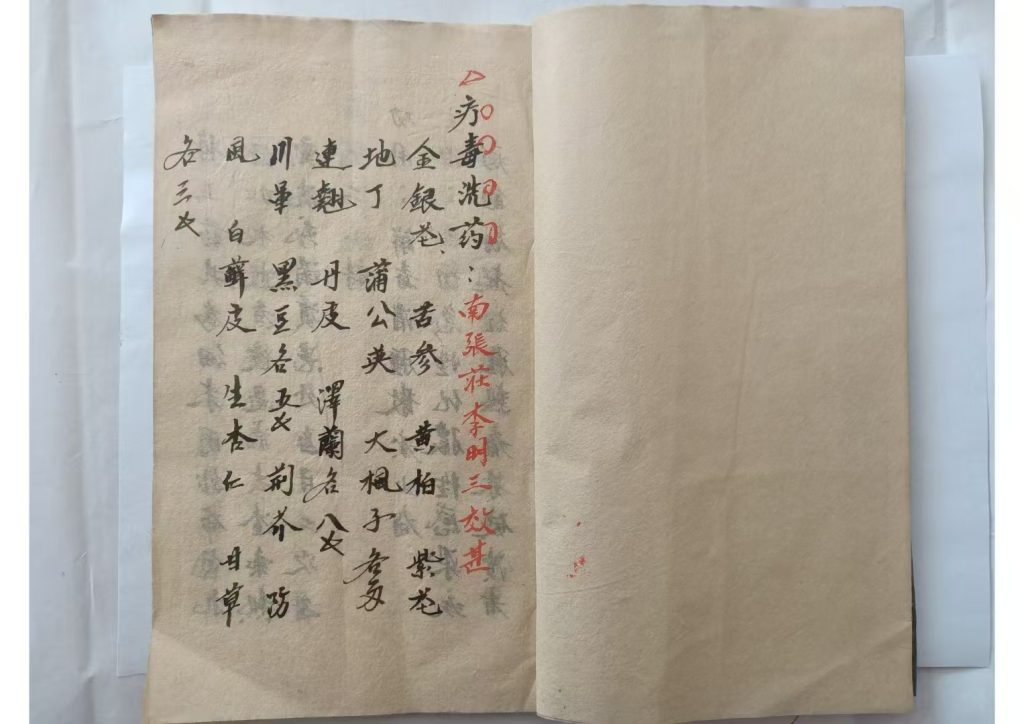 △疔毒洗药：南張莊李明三效甚
金銀花、苦参 黄柏 紫花
地丁 蒲公英 大楓子各两
連翹 丹皮 澤蘭各八钱
川軍 黑豆各五钱 荆芥 防
風 白蘚皮 生杏仁 甘草
各三钱